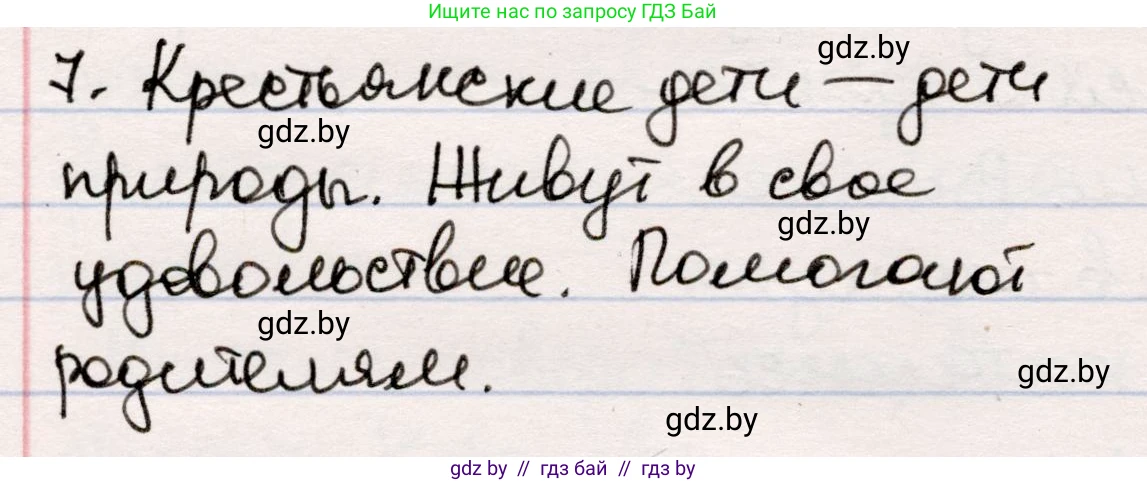 Ищите нас по запросу ГДЗ Бай
gdz.by
7. Крестьянские дети — дети
gdz.by
природы. Живут в свое
gdz.by
удовольствие. Помогают
gdz.by
родителям.
gdz.by
gdz.by
gdz by // гдз бай // гдз by